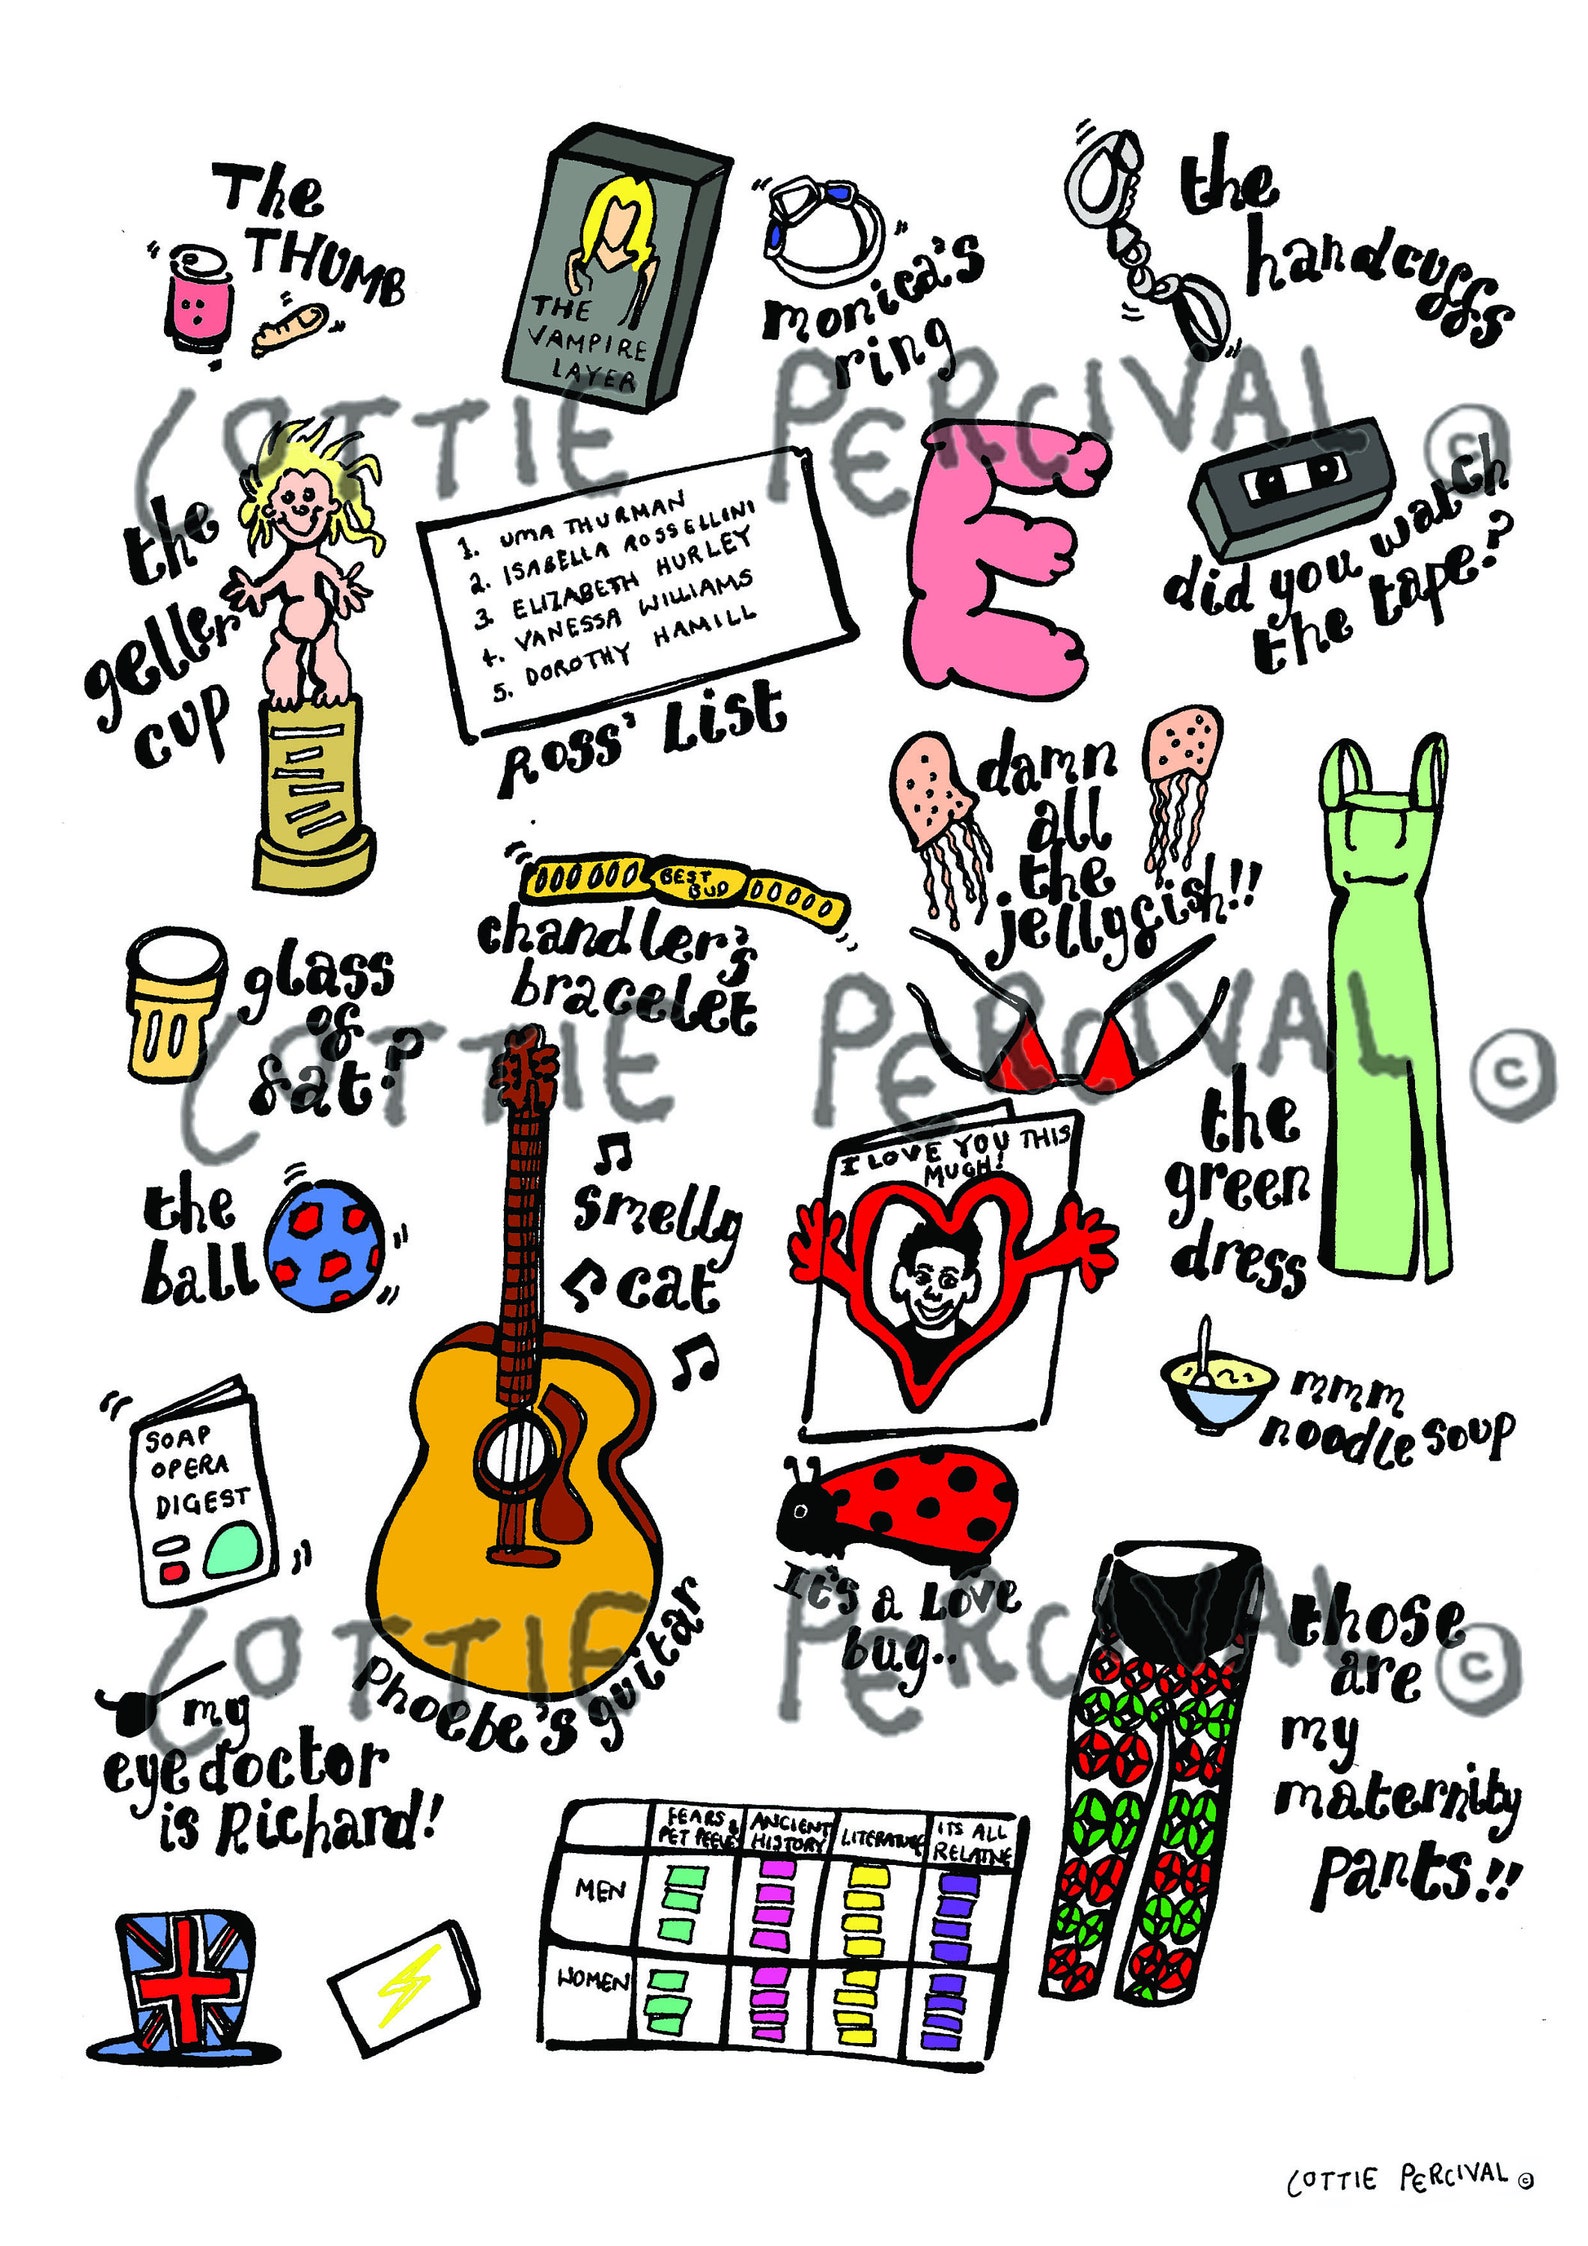 The
THUMB
THE
VAMPIRE
LAYER
monica's
ring
the
handcuffs
the
geller
cup
1. UMA THURMAN
2. ISABELLA ROSSELLINI
3. ELIZABETH HURLEY
4. VANESSA WILLIAMS
5. DOROTHY HAMILL
ROSS' LIST
E
did you watch
the tape?
damn
all
the
jellyfish!!
BEST
BUD
chandler's
bracelet
glass
of
fat?
the
green
dress
the
ball
smelly
cat
I LOVE YOU THIS
MUCH!
mmm
noodle soup
SOAP
OPERA
DIGEST
Phoebe's guitar
It's a Love
bug..
my
eye doctor
is Richard!
those
are
my
maternity
pants!!
FEARS &
PET PEEVES
ANCIENT
HISTORY
LITERATURE
ITS ALL
RELATIVE
MEN
WOMEN
LOTTIE PERCIVAL ©
LOTTIE PERCIVAL ©
LOTTIE PERCIVAL ©
LOTTIE PERCIVAL ©